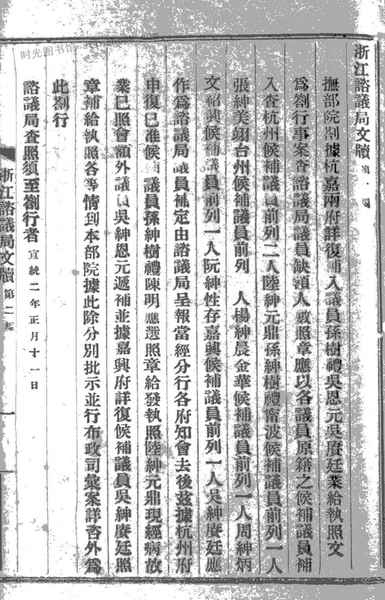 浙江諮議局文牘
撫部院劄據杭嘉兩府詳復補入議員孫樹禮吳恩元吳賡廷業給執照文
為劄行事案查諮議局議員缺額人數照章應以各議員原籍之候補議員補
入查杭州候補議員前列二人陸紳元鼎孫紳樹禮甯波候補議員前列一人
張紳美翊台州候補議員前列 人楊紳晨金華候補議員前列一人周紳炳
文紹興候補議員前列一人阮紳性存嘉興候補議員前列一人吳紳賡廷應
作為諮議局議員補定由諮議局呈報當經分行各府知會去後茲據杭州府
申復已准候補議員孫紳樹禮陳明應選照章給發執照陸紳元鼎現經病故
業已照會額外議員吳紳恩元遞補並據嘉興府詳復候補議員吳紳賡廷照
章補給執照各等情到本部院據此除分別批示並行布政司彙案詳咨外為
此劄行
諮議局查照須至劄行者 宣統二年正月十一日
浙江諮議局文牘 第二 一
时光图书馆